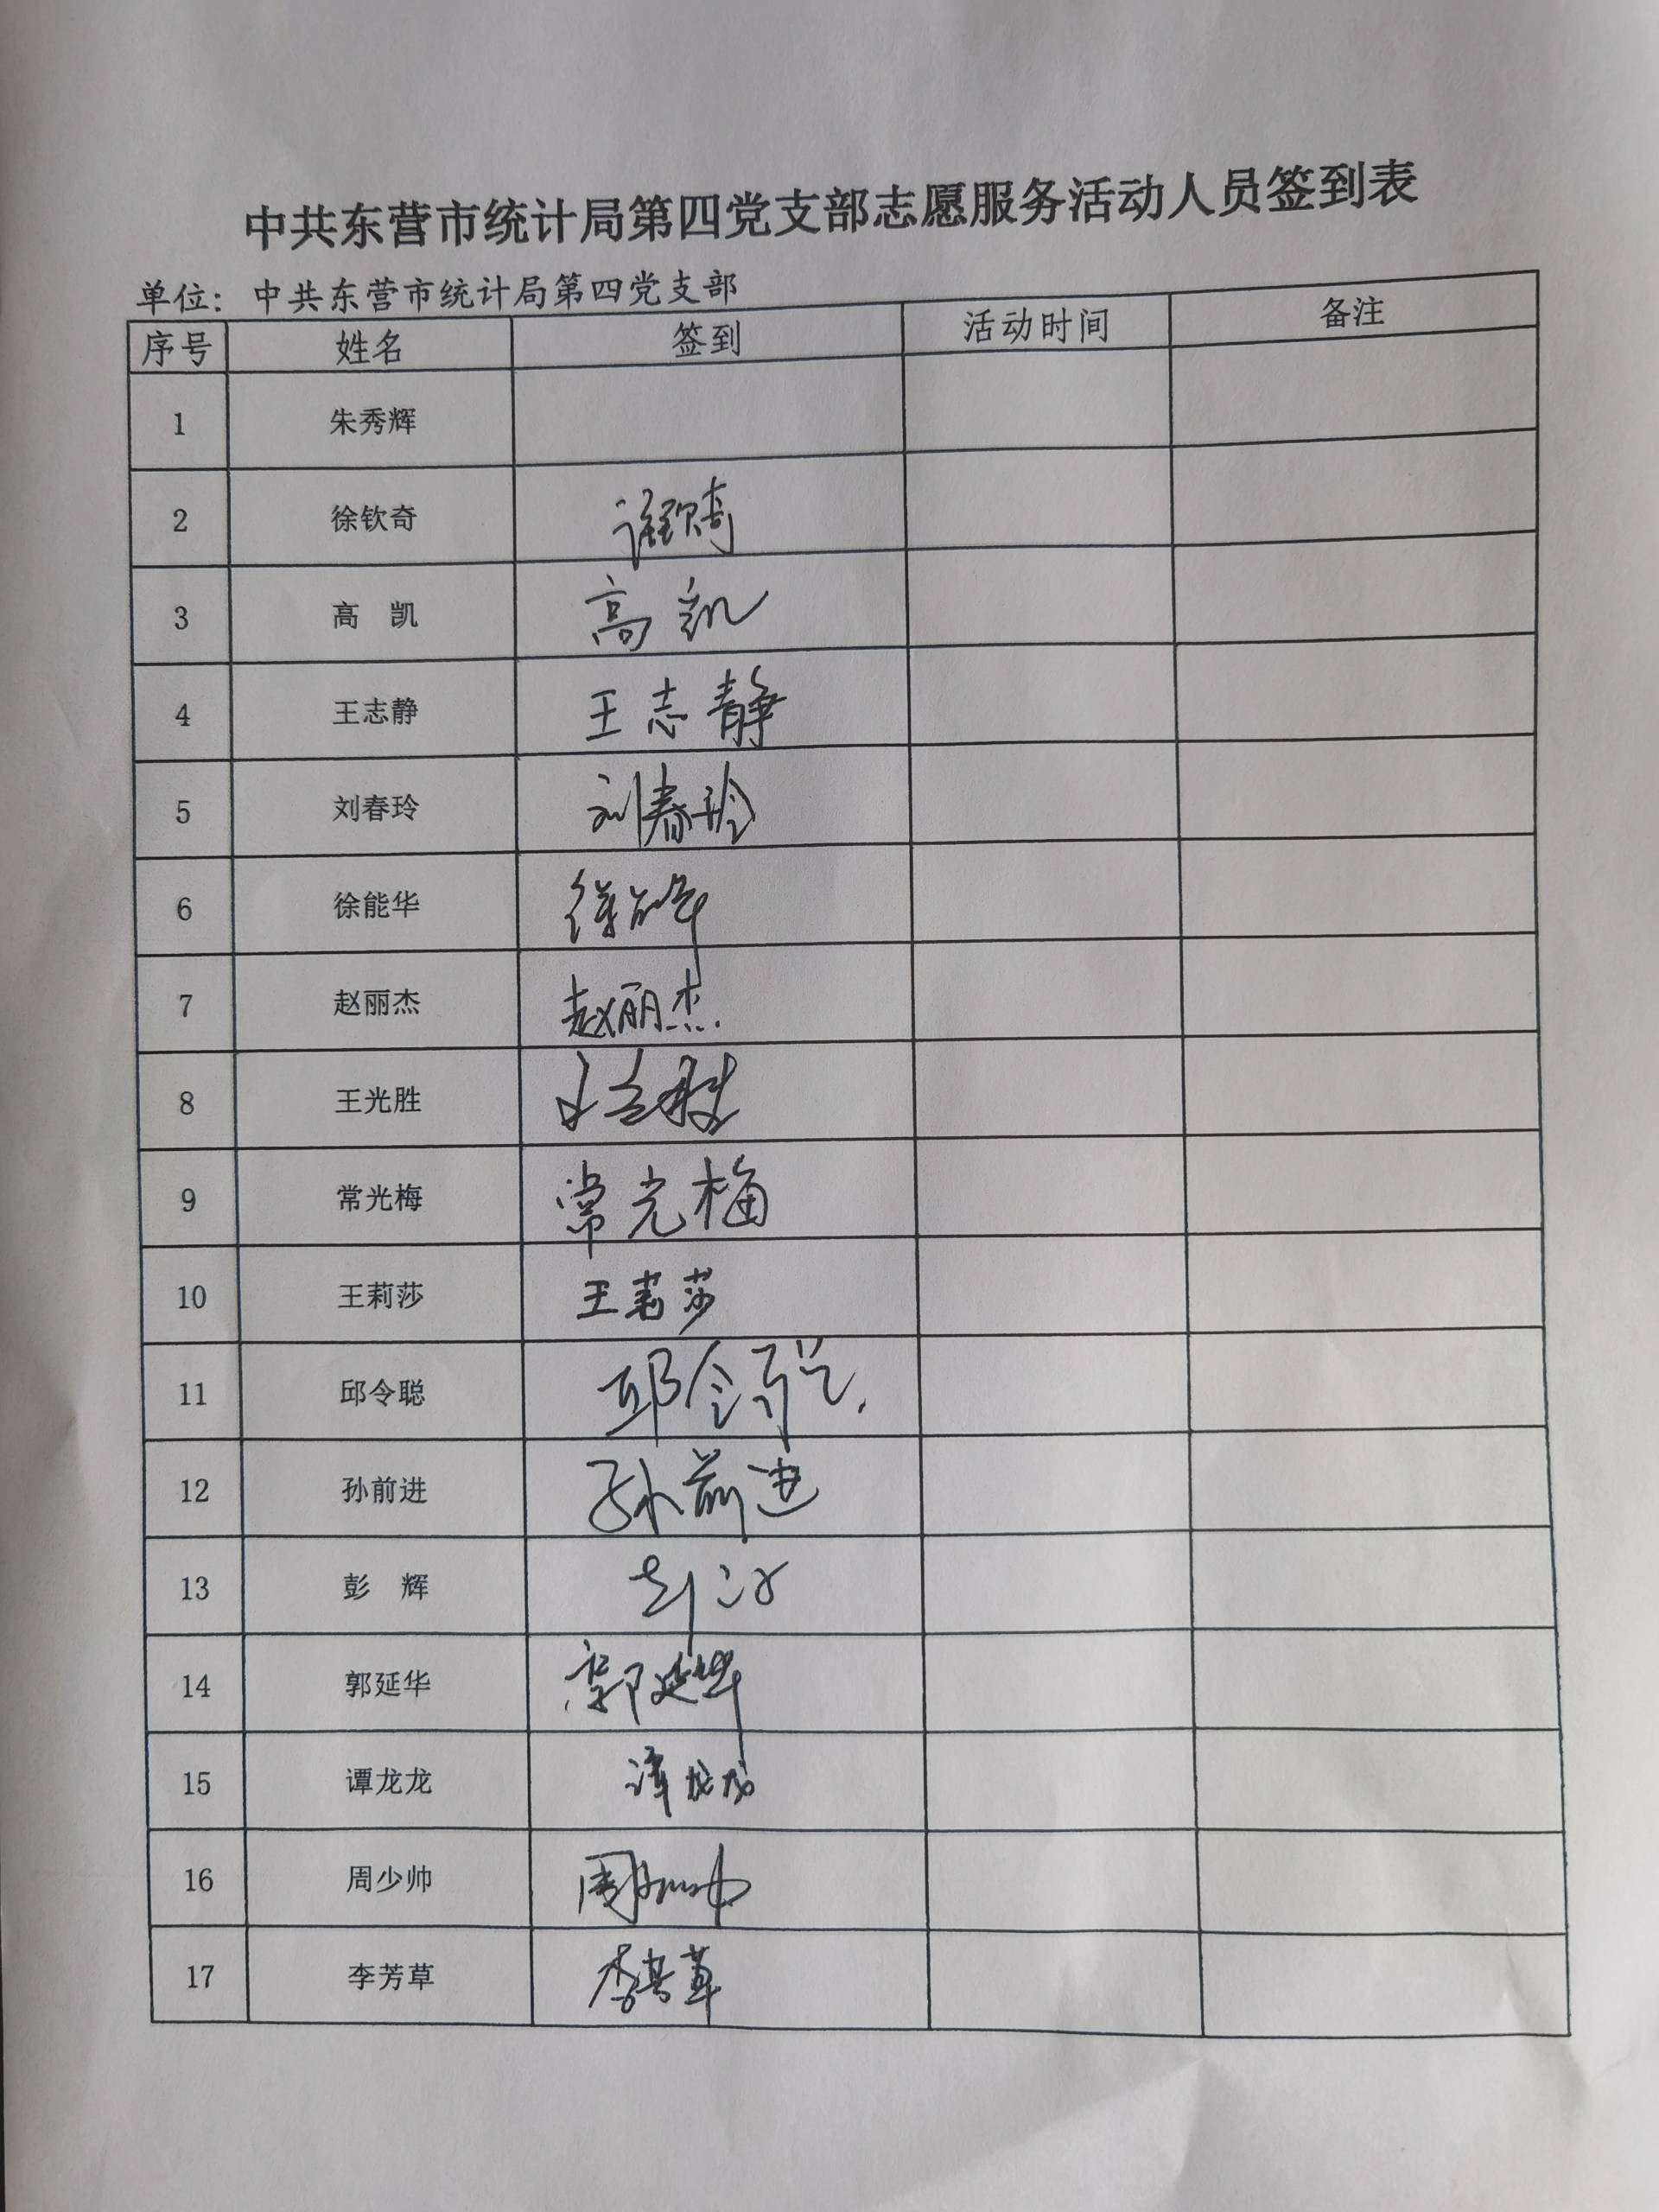 中共东营市统计局第四党支部志愿服务活动人员签到表
单位：中共东营市统计局第四党支部
序号 姓名 签到 活动时间 备注
1 朱秀辉
2 徐钦奇
3 高 凯 高凯
4 王志静 王志静
5 刘春玲 刘春玲
6 徐能华 徐能华
7 赵丽杰 赵丽杰
8 王光胜 王光胜
9 常光梅 常光梅
10 王莉莎 王莉莎
11 邱令聪 邱令聪
12 孙前进 孙前进
13 彭 辉
14 郭延华 郭延华
15 谭龙龙 谭龙龙
16 周少帅 周少帅
17 李芳草 李芳草